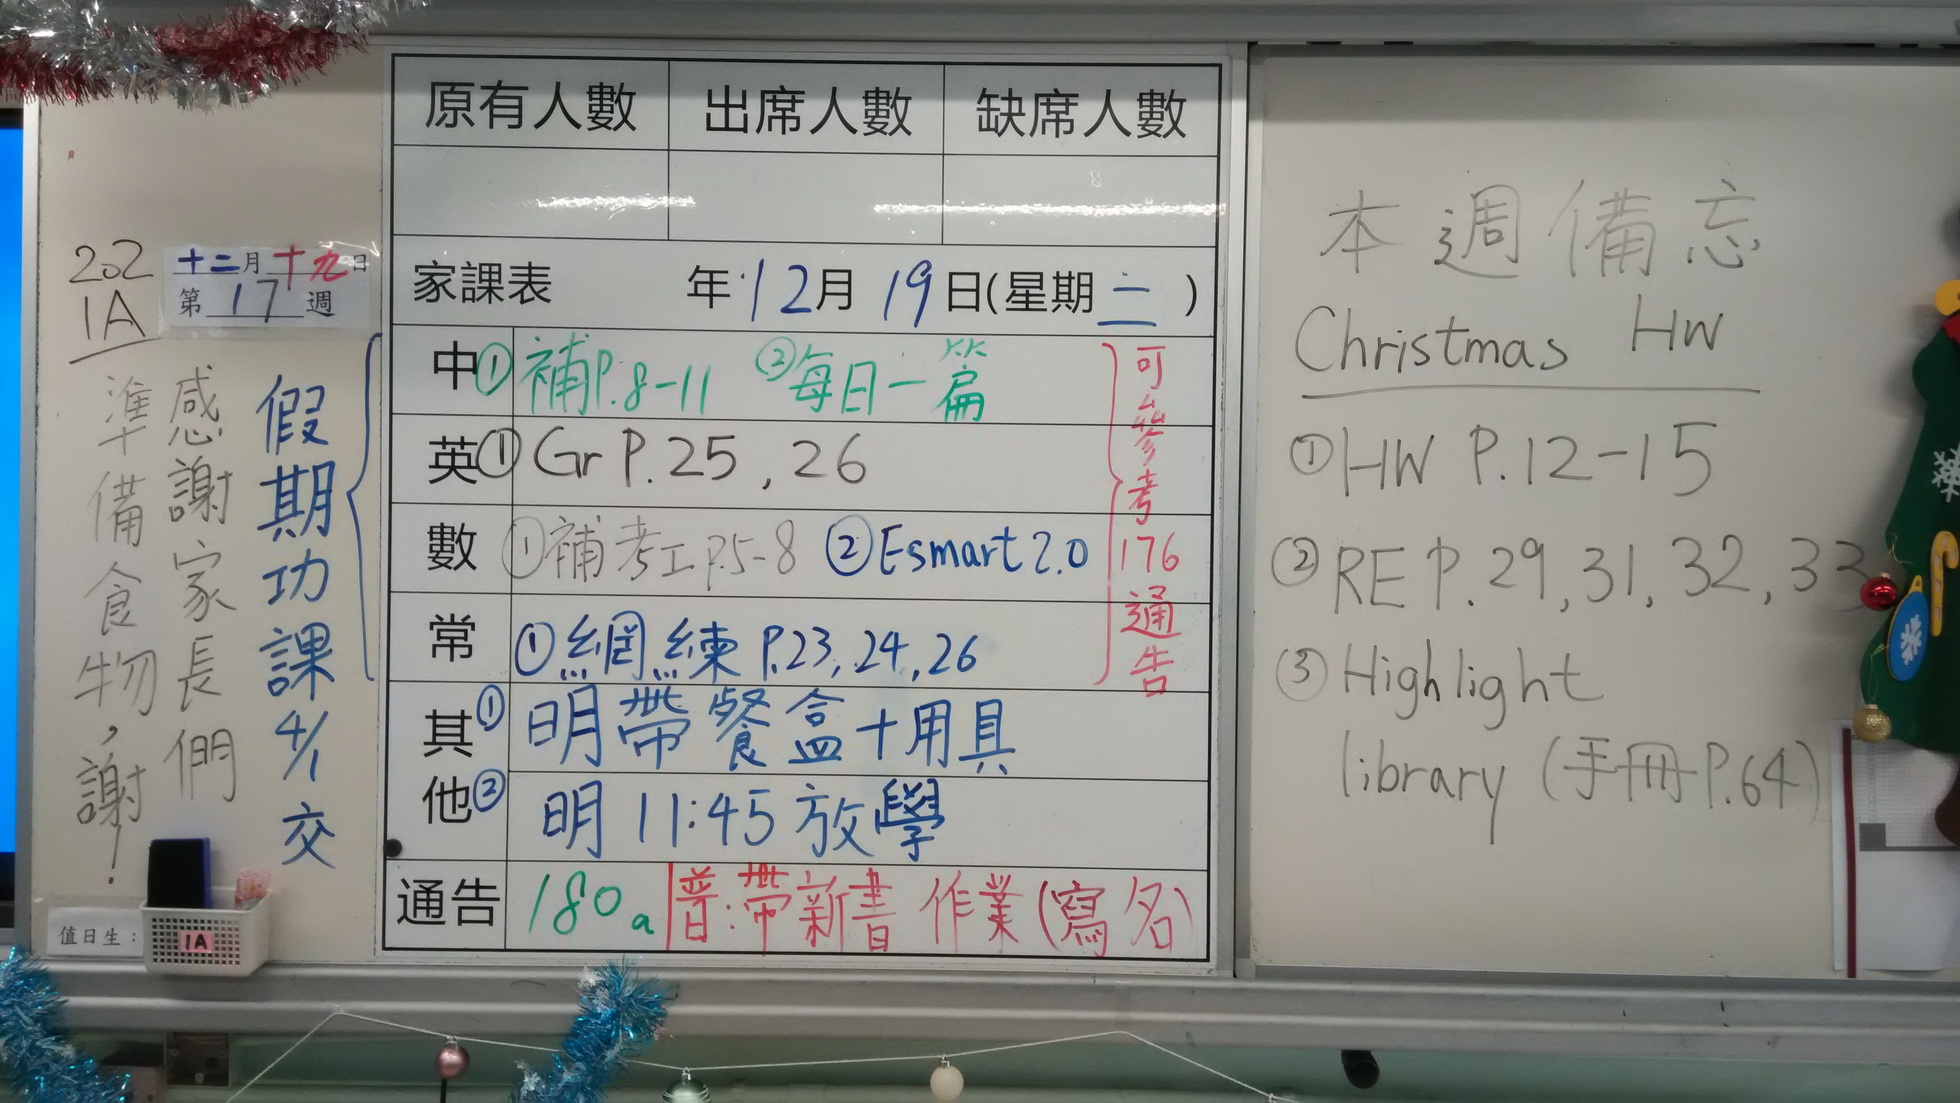 202
1A
十二月十九日
第17週
假期功課4/1交
感謝家長們
準備食物，謝！
值日生：
1A
原有人數 出席人數 缺席人數
家課表 年12月19日(星期二)
中 ①補P.8-11 ②每日一篇
英 ①Gr P.25, 26
數 ①補考工P.5-8 ②Esmart 2.0
常 ①網練 P.23, 24, 26
可參考176通告
其他 ①明帶餐盒+用具
②明11:45放學
通告 180a 普:帶新書作業(寫名)
本週備忘
Christmas HW
①HW P.12-15
②RE P.29, 31, 32, 33
③Highlight
library (手冊P.64)